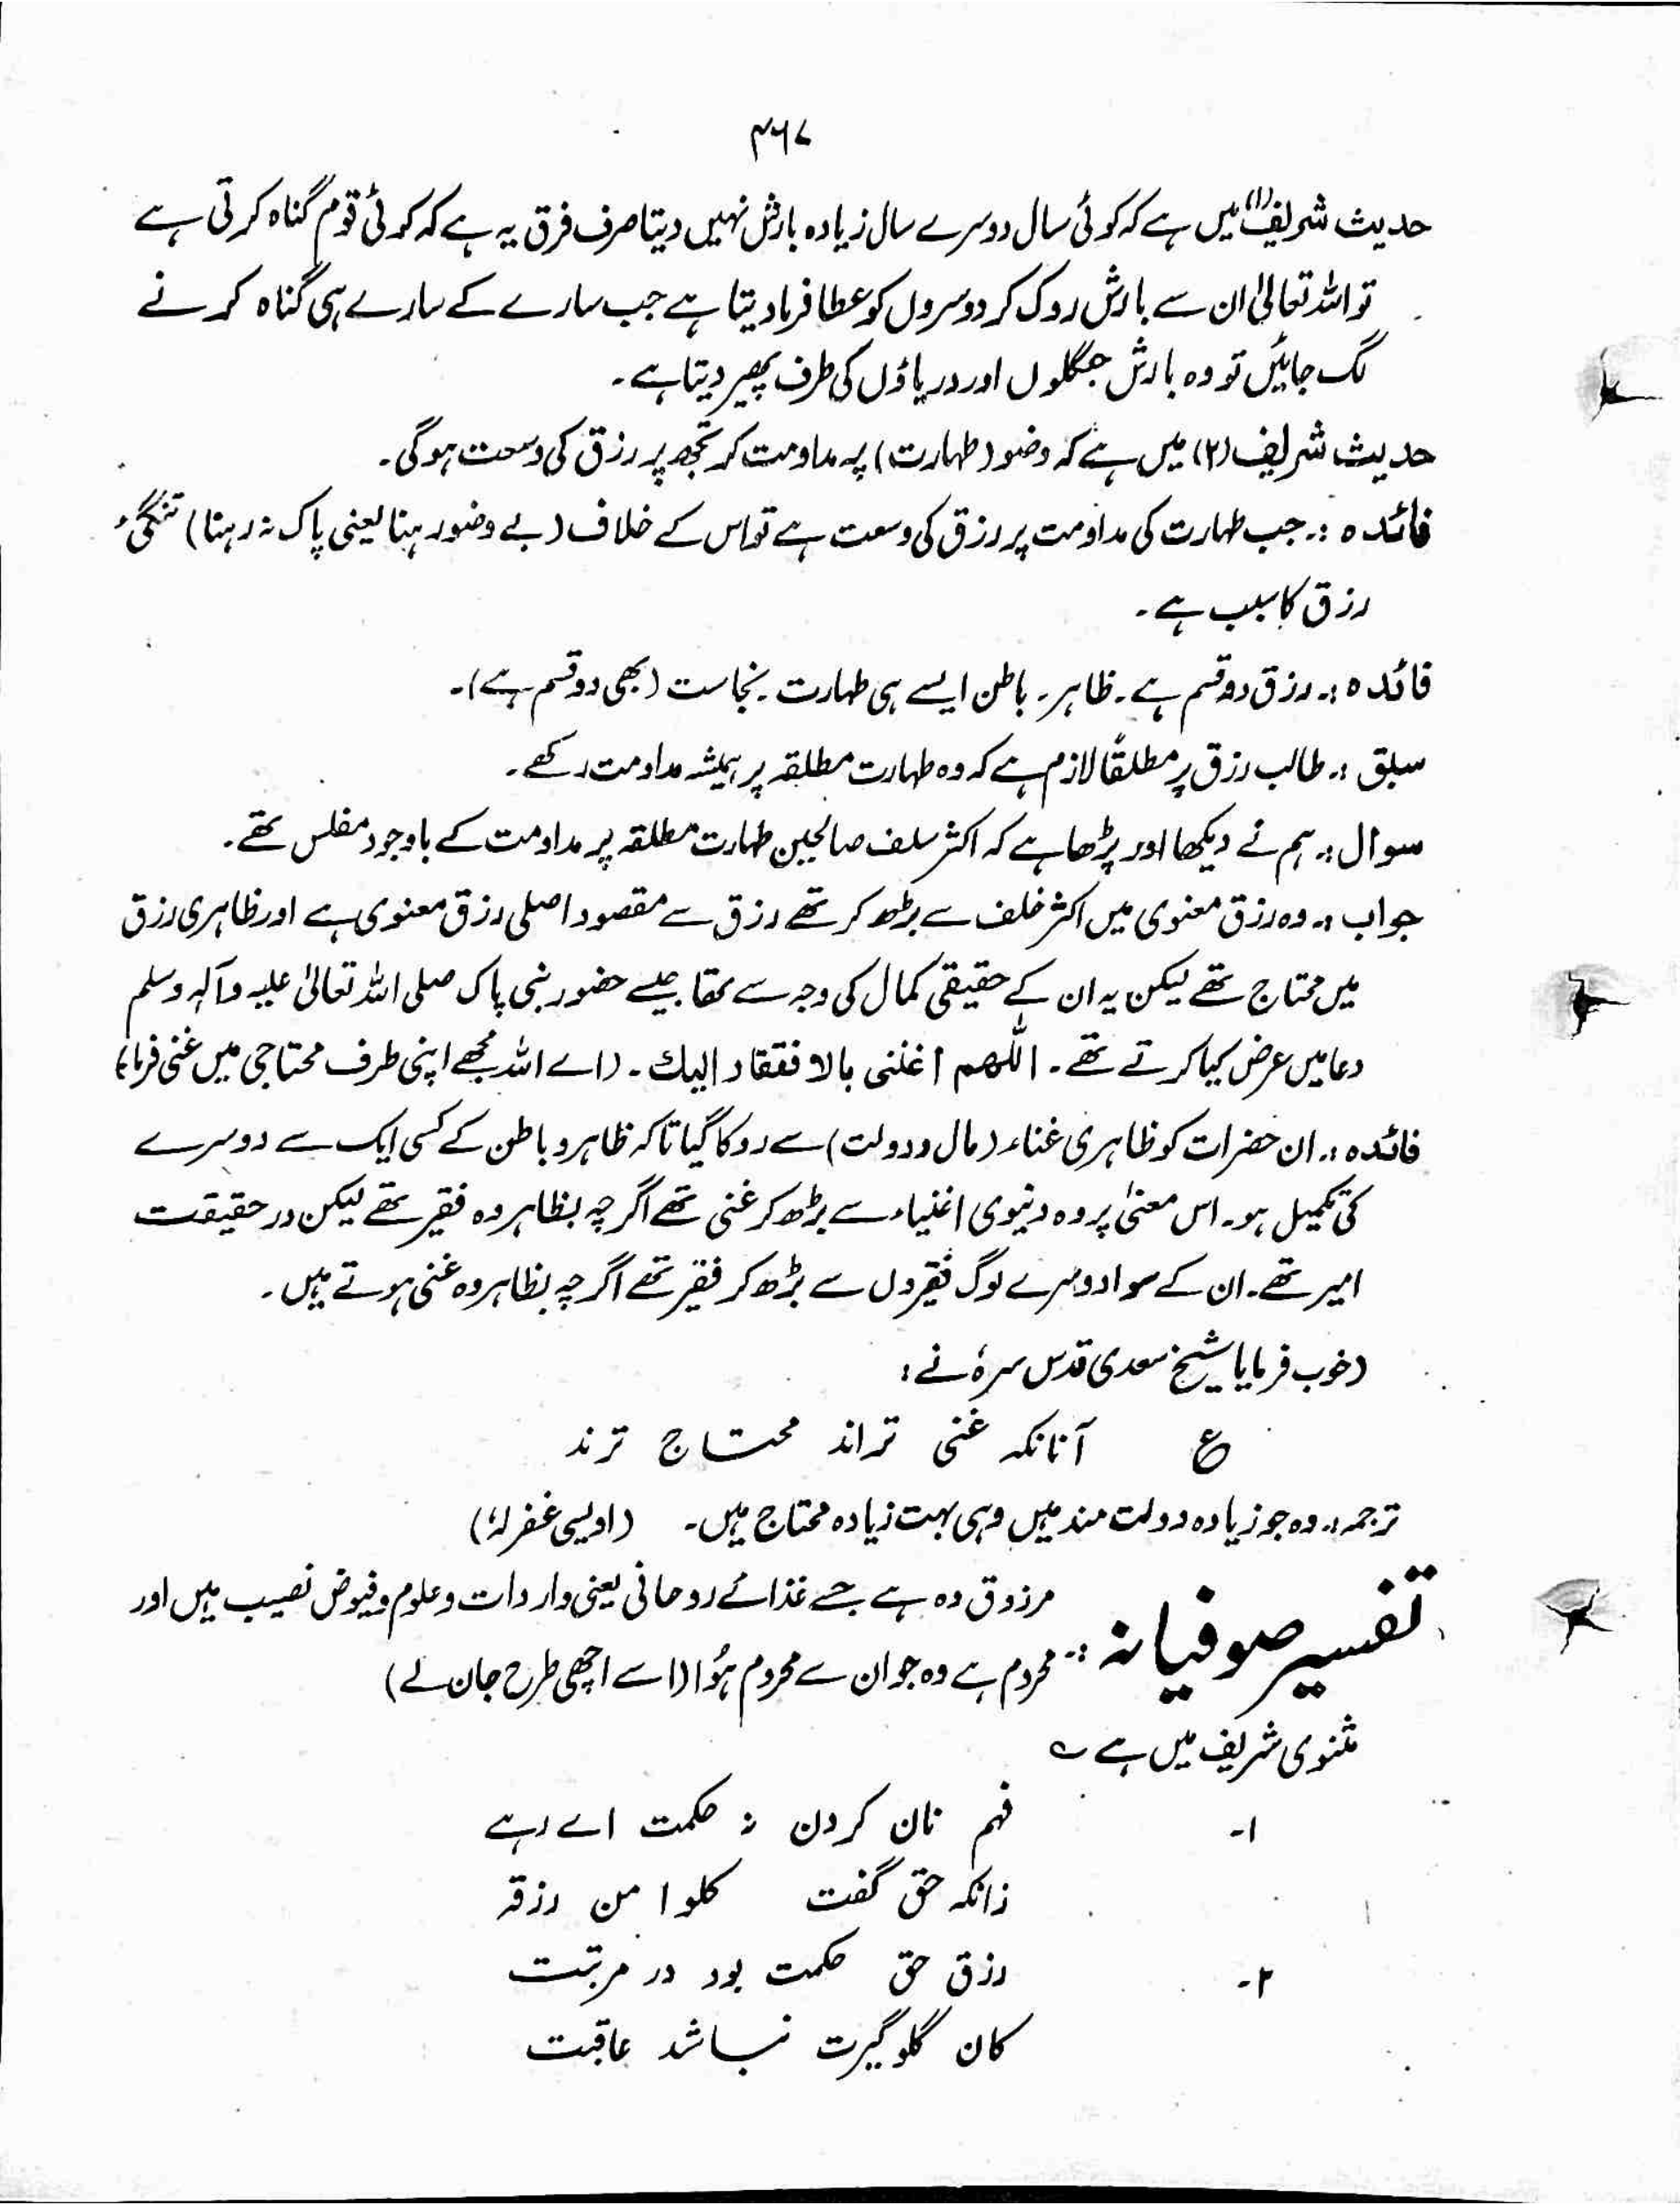 ۴۶۷
حدیث شریف(۱) میں ہے کہ کوئی سال دوسرے سال زیادہ بارش نہیں دیتا صرف فرق یہ ہے کہ کوئی قوم گناہ کرتی ہے
تو اللہ تعالیٰ ان سے بارش روک کر دوسروں کو عطا فرما دیتا ہے جب سارے کے سارے ہی گناہ کرنے
لگ جائیں تو وہ بارش جنگلوں اور دریاؤں کی طرف پھیر دیتا ہے۔
حدیث شریف (۲) میں ہے کہ وضو (طہارت) پہ مداومت کر تجھ پر رزق کی وسعت ہوگی۔
فائدہ :۔ جب طہارت کی مداومت پر رزق کی وسعت ہے تو اس کے خلاف (بے وضو رہنا یعنی پاک نہ رہنا) تنگیٔ
رزق کا سبب ہے۔
فائدہ :۔ رزق دو قسم ہے۔ ظاہر۔ باطن ایسے ہی طہارت۔ نجاست (بھی دو قسم ہے)۔
سبق :۔ طالب رزق پر مطلقًا لازم ہے کہ وہ طہارت مطلقہ پر ہمیشہ مداومت رکھے۔
سوال :۔ ہم نے دیکھا اور پڑھا ہے کہ اکثر سلف صالحین طہارت مطلقہ پر مداومت کے باوجود مفلس تھے۔
جواب :۔ وہ رزق معنوی میں اکثر خلف سے بڑھ کر تھے رزق سے مقصود اصلی رزق معنوی ہے اور ظاہری رزق
میں محتاج تھے لیکن یہ ان کے حقیقی کمال کی وجہ سے تھا جیسے حضور نبی پاک صلی اللہ تعالیٰ علیہ وآلہ وسلم
دعا میں عرض کیا کرتے تھے۔ اللھم اغننی بالا فتقار الیك۔ (اے اللہ مجھے اپنی طرف محتاجی میں غنی فرما)
فائدہ :۔ ان حضرات کو ظاہری غناء (مال و دولت) سے روکا گیا تاکہ ظاہر و باطن کے کسی ایک سے دوسرے
کی تکمیل ہو۔ اس معنیٰ پر وہ دنیوی اغنیاء سے بڑھ کر غنی تھے اگرچہ بظاہر وہ فقیر تھے لیکن در حقیقت
امیر تھے۔ ان کے سوا دوسرے لوگ فقیروں سے بڑھ کر فقیر تھے اگرچہ بظاہر وہ غنی ہوتے ہیں۔
(خوب فرمایا شیخ سعدی قدس سرہٗ نے :
ع آنانکہ غنی تراند محتاج ترند
ترجمہ :۔ وہ جو زیادہ دولت مند ہیں وہی بہت زیادہ محتاج ہیں۔ (اویسی غفرلہٗ)
تفسیر صوفیانہ :۔ مرزوق وہ ہے جسے غذائے روحانی یعنی واردات و علوم و فیوض نصیب ہیں اور
محروم ہے وہ جو ان سے محروم ہُوا (اسے اچھی طرح جان لے)
مثنوی شریف میں ہے ؎
۱۔ فہم نان کردن نہ حکمت اے رہے
زانکہ حق گفت کلوا من رزقہ
۲۔ رزق حق حکمت بود در مرتبت
کان گلو گیرت نباشد عاقبت